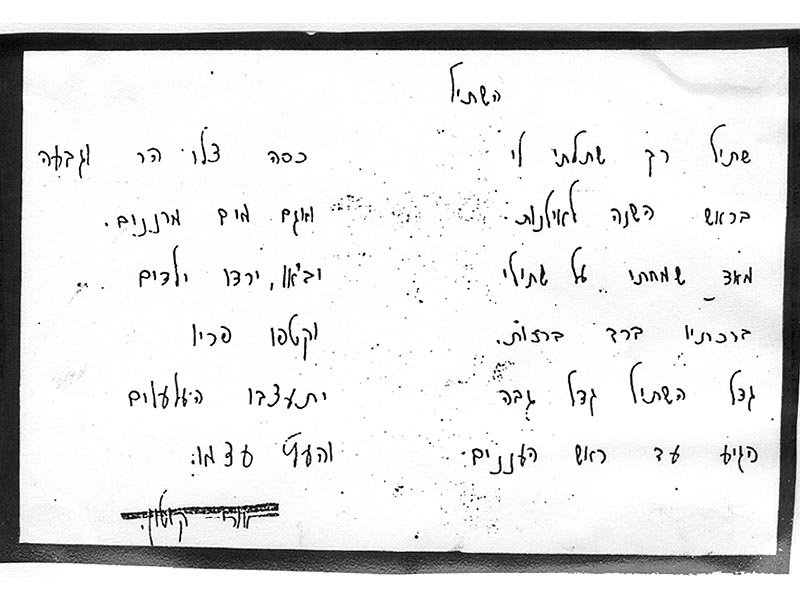 השתיל
שתיל רך שתלתי לי
בראש השנה לאילנות.
מאד שמחתי על שתילי
ברכתיו ברב ברכות.
גדל השתיל גדל גבה
הגיע עד ראש העננים.
כסה צלו הר וגבעה
וגם מים מרננים.
ובאו, ירדו ילדים
וקטפו פריו
יתעצבו העלעלים
והעץ עצמו.